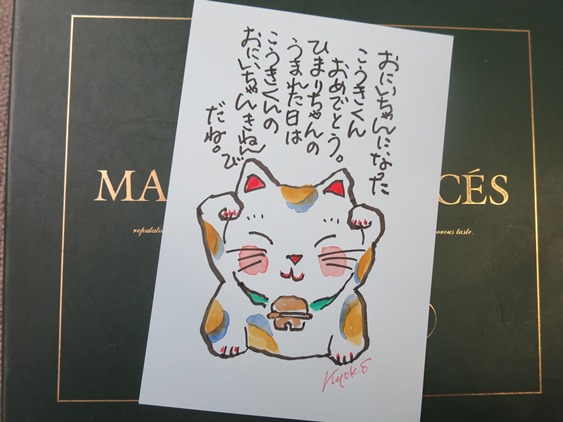 おにいちゃんになった
こうきくん
おめでとう。
ひまりちゃんの
うまれた日は
こうきくんの
おにいちゃんきねんび
だね。
Kyoko
MA
CÉS
reputati
orous taste.